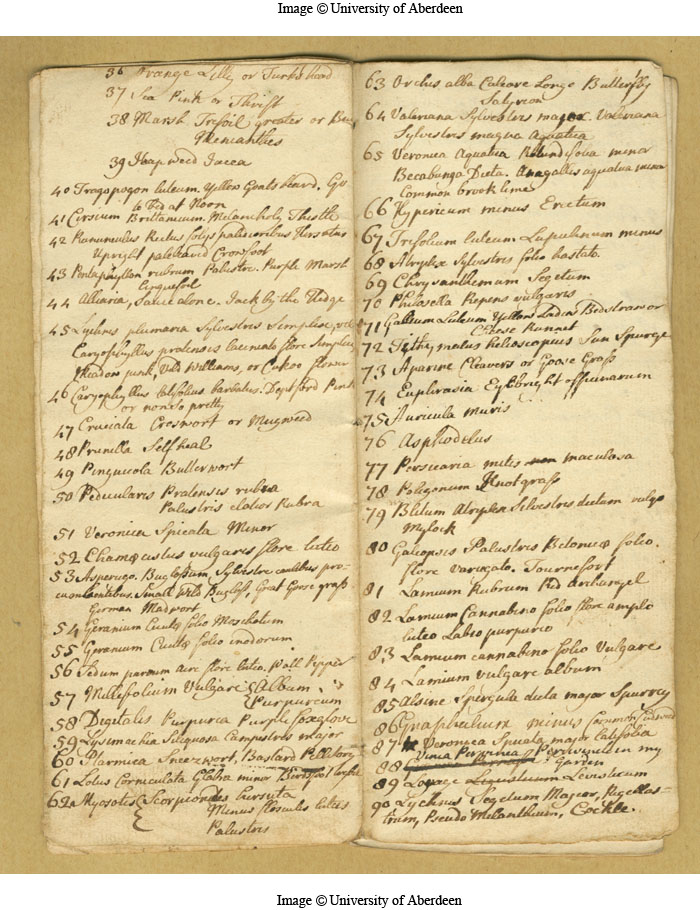 Image © University of Aberdeen
36 Orange Lilly or Turks head
37 Sea Pink or Thrift
38 Marsh Trefoil greater or
Menianthes
39 Knapweed Jacea
40 Tragopogon luteum. Yellow Goats beard. Go
to Bed at Noon
41 Cirsium Brittanicum. Melancholy Thistle
42 Ranunculus Rectus folijs pallidioribus Hirsutus
Upright pale leav'd Crowfoot
43 Pentaphyllon rubrum Palustre. Purple Marsh
Cinquefoil
44 Alliaria, Sauce alone. Jack by the Hedge
45 Lychnis plumaria Sylvestris Simplex,
Caryophyllus pratensis laciniato flore Simplici
Meadow pink, Wild Williams, or Cukoo flower
46 Caryophyllus latifolius barbatus. Deptford Pink
or none so pretty
47 Cruciata Croswort or Mugweed
48 Prunella Selfheal
49 Pinguicola Butterwort
50 Pedicularis Pratensis rubra
Palustris elatior Rubra
51 Veronica Spicata Minor
52 Chamæcistus vulgaris flore luteo
53 Asperugo. Buglossum, Sylvestre caulibus pro-
cumbentibus. Small Wild Bugloss, Great Goose grass
German Madwort
54 Geranium Cicutæ folio Moschatum
55 Geranium Cicutæ folio inodorum
56 Sedum parvum acre flore luteo. Wall Pepper
57 Millefolium Vulgare {Album
{Purpureum
58 Digitalis Purpurea Purple foxglove
59 Lysimachia Siliquosa Campestris major
60 Ptarmica Sneezwort, Bastard Pellitory
61 Lotus Corniculata Glabra minor Birdsfoot trefoil
62 Myosotis {Scorpiondes hirsuta
Minus flosculis luteis
Palustris
63 Orchis alba Calcare Longo Butterfly
Satyrion
64 Valeriana Sylvestris major. Valeriana
Sylvestris magna Aquatica
65 Veronica Aquatica Rotundifolia minor
Becabunga Dicta. Anagallis aquatica minor
Common brook lime
66 Hypericum minus Erectum
67 Trifolium luteum Lupulinum minus
68 Atriplex Sylvestris folio hastato.
69 Chrysanthemum Segetum
70 Philosella Repens vulgaris
71 Gallium Luteum Yellow Ladies Bedstraw or
Cheese Runnet
72 Tithymalus helioscopius Sun Spurge
73 Aparine Cleavers or Goose Grass
74 Euphrasia Eyebright officinarum
75 Auricula muris
76 Asphodelus
77 Persicaria mitis maculosa
78 Poligonum Knotgrass
79 Blitum Atriplex Silvestris dictum vulgo
Mylock
80 Galiopsis Palustris Betonicæ folio.
flore variegato. Tournefort
81 Lamium Rubrum Red Archangel
82 Lamium Cannabino folio flore amplo
luteo Labio purpureo
83 Lamium cannabino folio Vulgare
84 Lamium vulgare album
85 Alsine Spergula dicta major Spurrey
86 Gnaphalium minus Common Cudweed
87 Veronica Spicata major latifolia
88 Vinca Pervinca Perwincle in my
Garden
89 Ligusticum Levisticum
90 Lychnis Segetum Major, Nigellas-
trum, Pseudo Melanthium, Cockle.
Image © University of Aberdeen